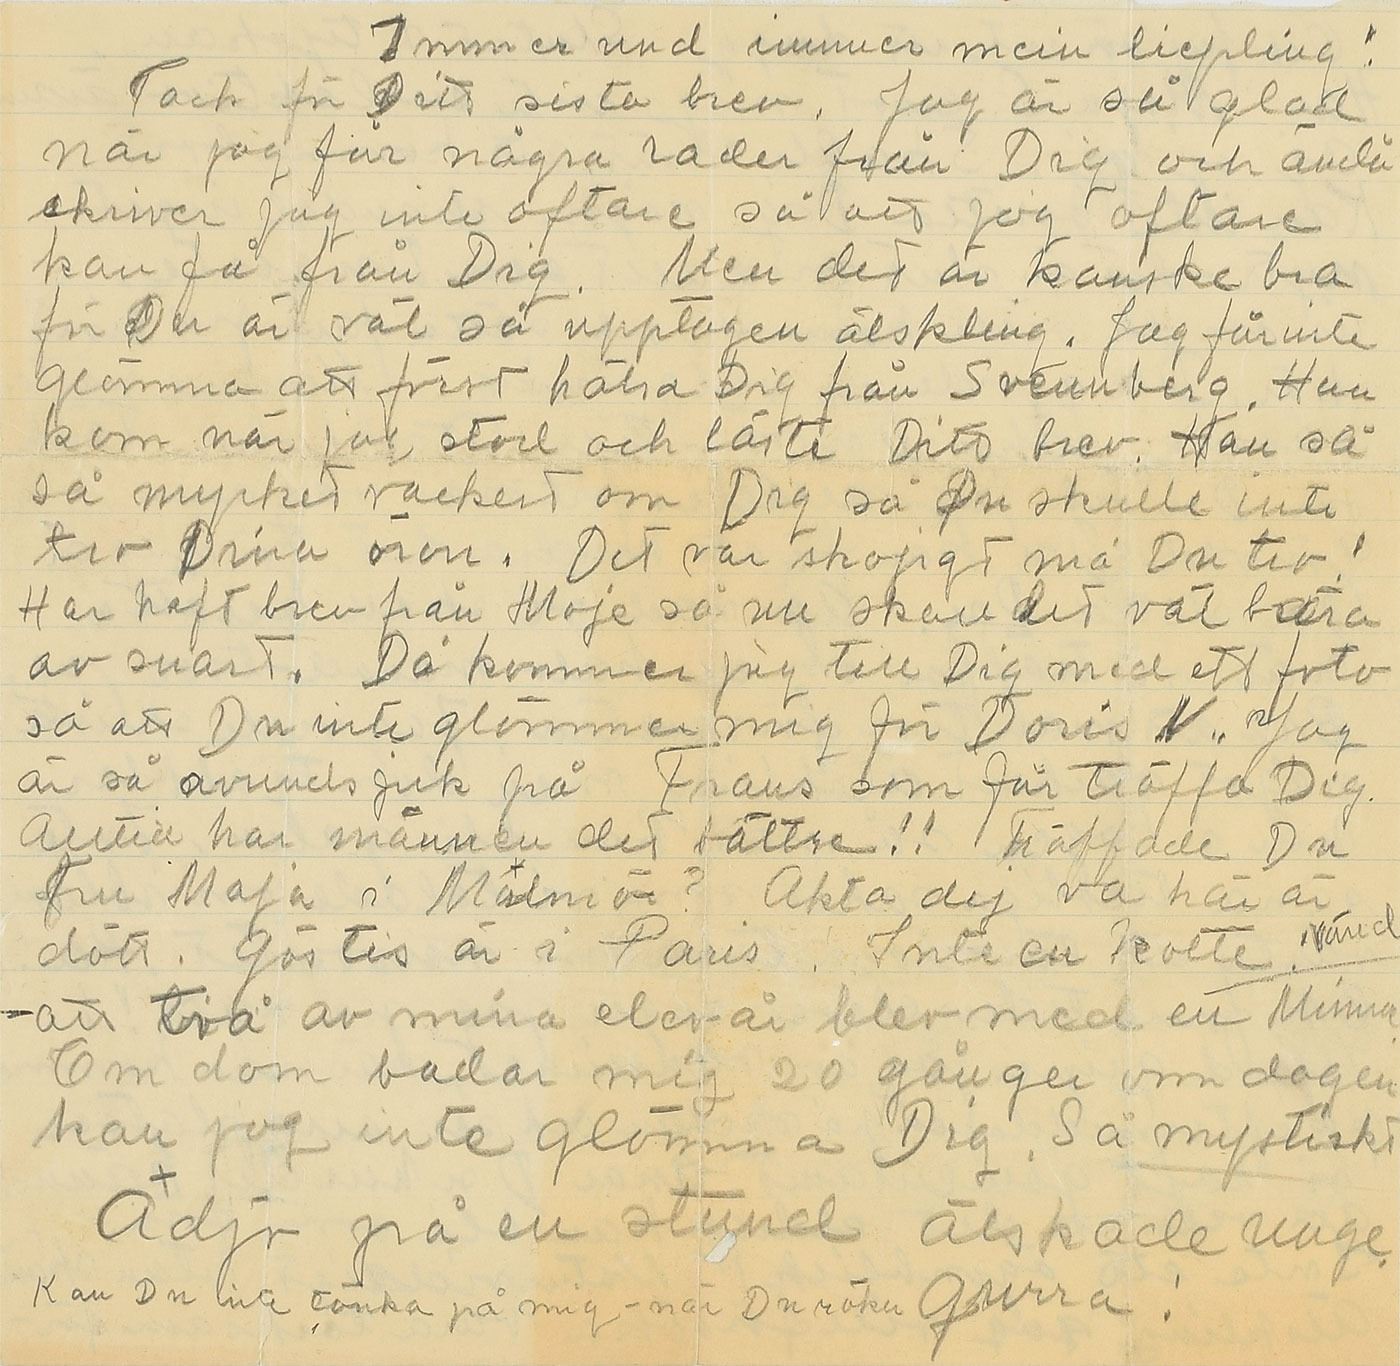 Immer und immer mein liepling!
Tack för Ditt sista brev. Jag är så glad
när jag får några rader från Dig och ändå
skriver jag inte oftare så att jag oftare
kan få från Dig. Men det är kanske bra
för Du är väl så upptagen älskling. Jag får inte
glömma att först hälsa Dig från Svennberg. Han
kom när jag stod och läste Ditt brev. Han sa
så mycket vackert om Dig så Du skulle inte
tro Dina öron. Det var skojigt må Du tro!
Har haft brev från Moje så nu skall det väl bära
av snart. Då kommer jag till Dig med ett foto
så att Du inte glömmer mig för Doris N.. Jag
är så avundsjuk på Frans som får träffa Dig.
Alltid har männen det bättre!! Träffade Du
fru Maja i Malmö? Akta dej va här är
dött. Göstis är i Paris. Inte en kotte. vänd
- att två av mina elevår blev med en Mimmi
Om dom badar mig 20 gånger om dagen
kan jag inte glömma Dig. Så mystiskt
Adjö på en stund älskade unge.
Kan Du inte tänka på mig - när Du röker Gurra!